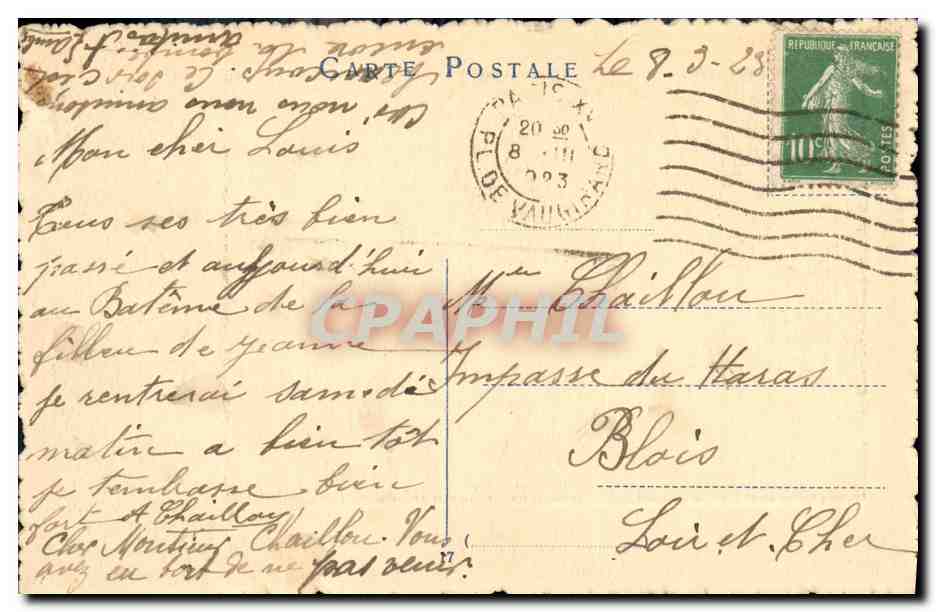 CARTE POSTALE
Le 8-3-23
REPUBLIQUE FRANÇAISE
10c
POSTES
PARIS XV
20
8 III
923
PL. DE VAUGIRARD
Mon cher Louis
Tous ses très bien
passé et aujourd'hui
au Batême de la
filleu de jeanne
je rentrerai samedi
matin a bien tôt
je t'embrasse bien
fort A Chaillou
Cher Monsieur Chaillou. Vous
avez eu tort de ne pas venir.
encore la
amitiés
nous nous
Mr Chaillou
Impasse du Haras
Blois
Loir et Cher
17
CPAPHIL